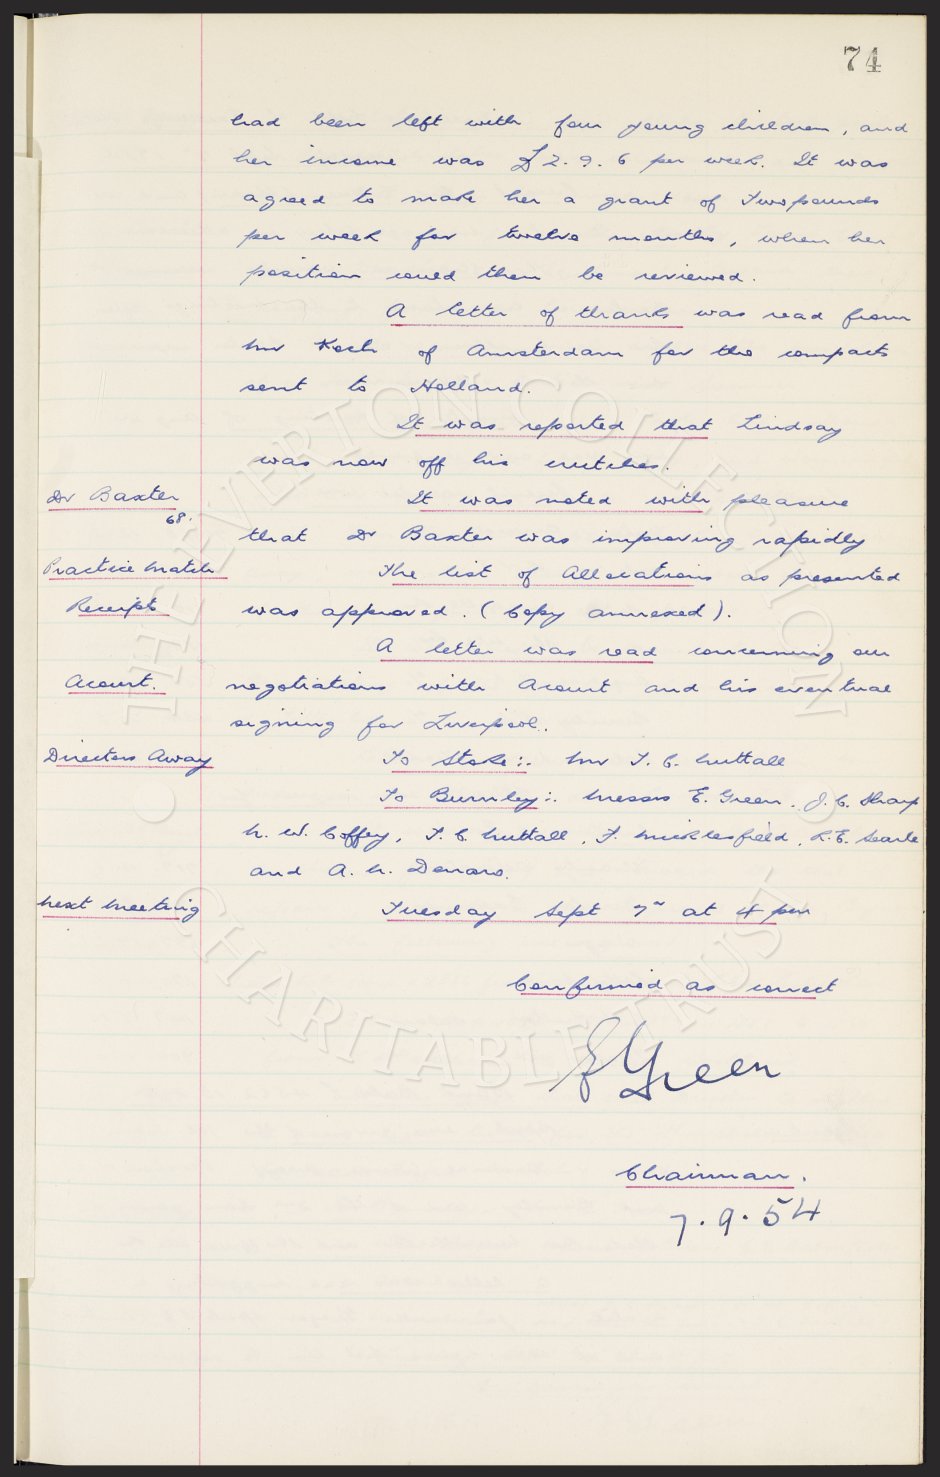 74
had been left with four young children, and
her income was £2.9.6 per week. It was
agreed to make her a grant of Two pounds
per week for twelve months, when her
position could then be reviewed.
A letter of thanks was read from
Mr Koch of Amsterdam for the compacts
sent to Holland.
It was reported that Lindsay
was now off his crutches.
Dr Baxter
68.
It was noted with pleasure
that Dr Baxter was improving rapidly
Practice Match
Receipts
The list of Allocations as presented
was approved. (Copy annexed).
A letter was read concerning our
Acourt.
negotiations with Acourt and his eventual
signing for Liverpool.
Directors Away
To Stoke:. Mr T. C. Nuttall
To Burnley:. Messrs E. Green. J. C. Sharp
N. W. Coffey, T. C. Nuttall, F. Micklesfield, R. E. Searle
and A. H. Denaro.
Next Meeting
Tuesday Sept 7th at 4 pm
Confirmed as correct
E Green
Chairman.
7.9.54
THE EVERTON COLLECTION
CHARITABLE TRUST